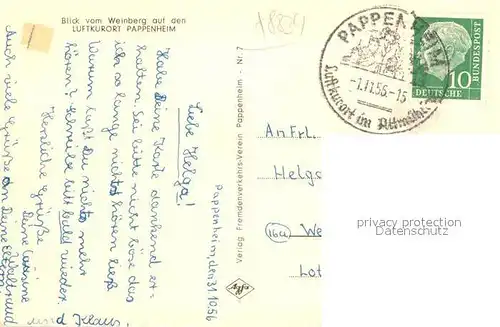 Blick vom Weinberg auf den
LUFTKURORT PAPPENHEIM
+8834
PAPPENHEIM
-1.11.56-15
Luftkurort im Altmühltal
10
DEUTSCHE
BUNDESPOST
Pappenheim, den 31.10.56
Liebe Helga!
Habe Deine Karte dankend er-
halten. Sei bitte nicht böse das
ich so lange nichts hören ließ
Warum läßt Du nichts mehr
hören? Schreibe bitte bald wieder.
Herzliche Grüße
Deine Cousine
Waltraud
und Klaus.
Auch viele Grüße an Deine Eltern
Verlag Fremdenverkehrs-Verein Pappenheim - Nr. 7
An Frl.
Helga
(16a) We
Lot
privacy protection
Datenschutz